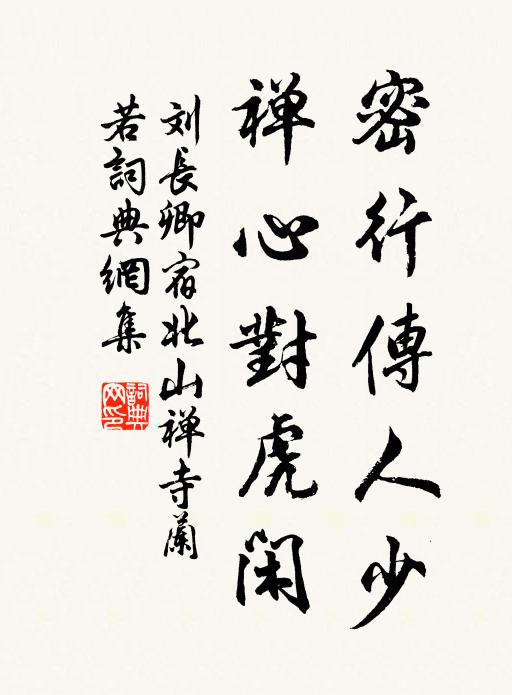 密行傳人少
禅心對虎闲
刘長卿宿北山禅寺蘭
若詞典網集
詞典
网印